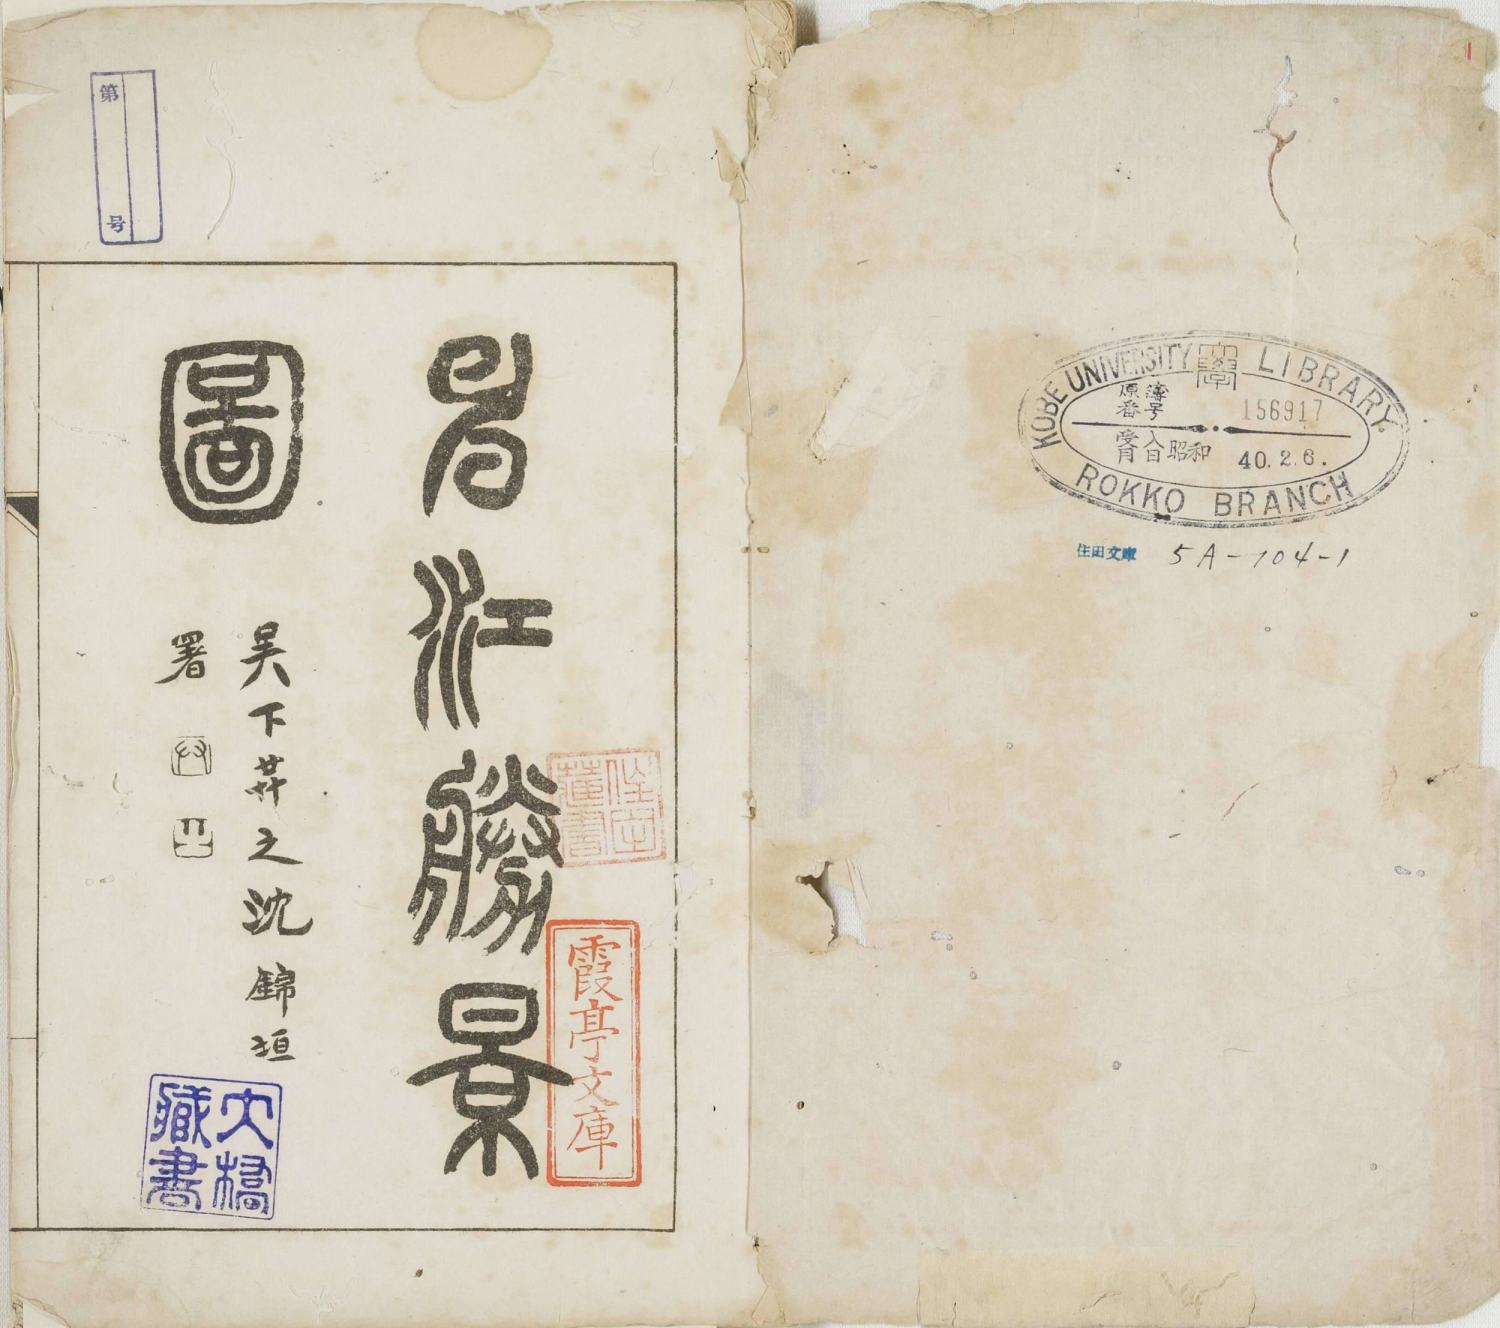 KOBE UNIVERSITY LIBRARY
原簿番号 156917
受入月日 昭和 40.2.6.
ROKKO BRANCH
住田文庫 5A-104-1
申江勝景
圖
吳下卄之沈錦垣
署
霞亭文庫
大橋藏書
第
号